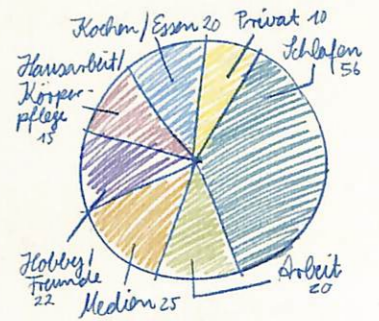 Kochen/Essen 20
Privat 10
Schlafen
56
Hausarbeit/
Körper-
pflege
15
Hobby/
Freunde
22
Medien 25
Arbeit
20